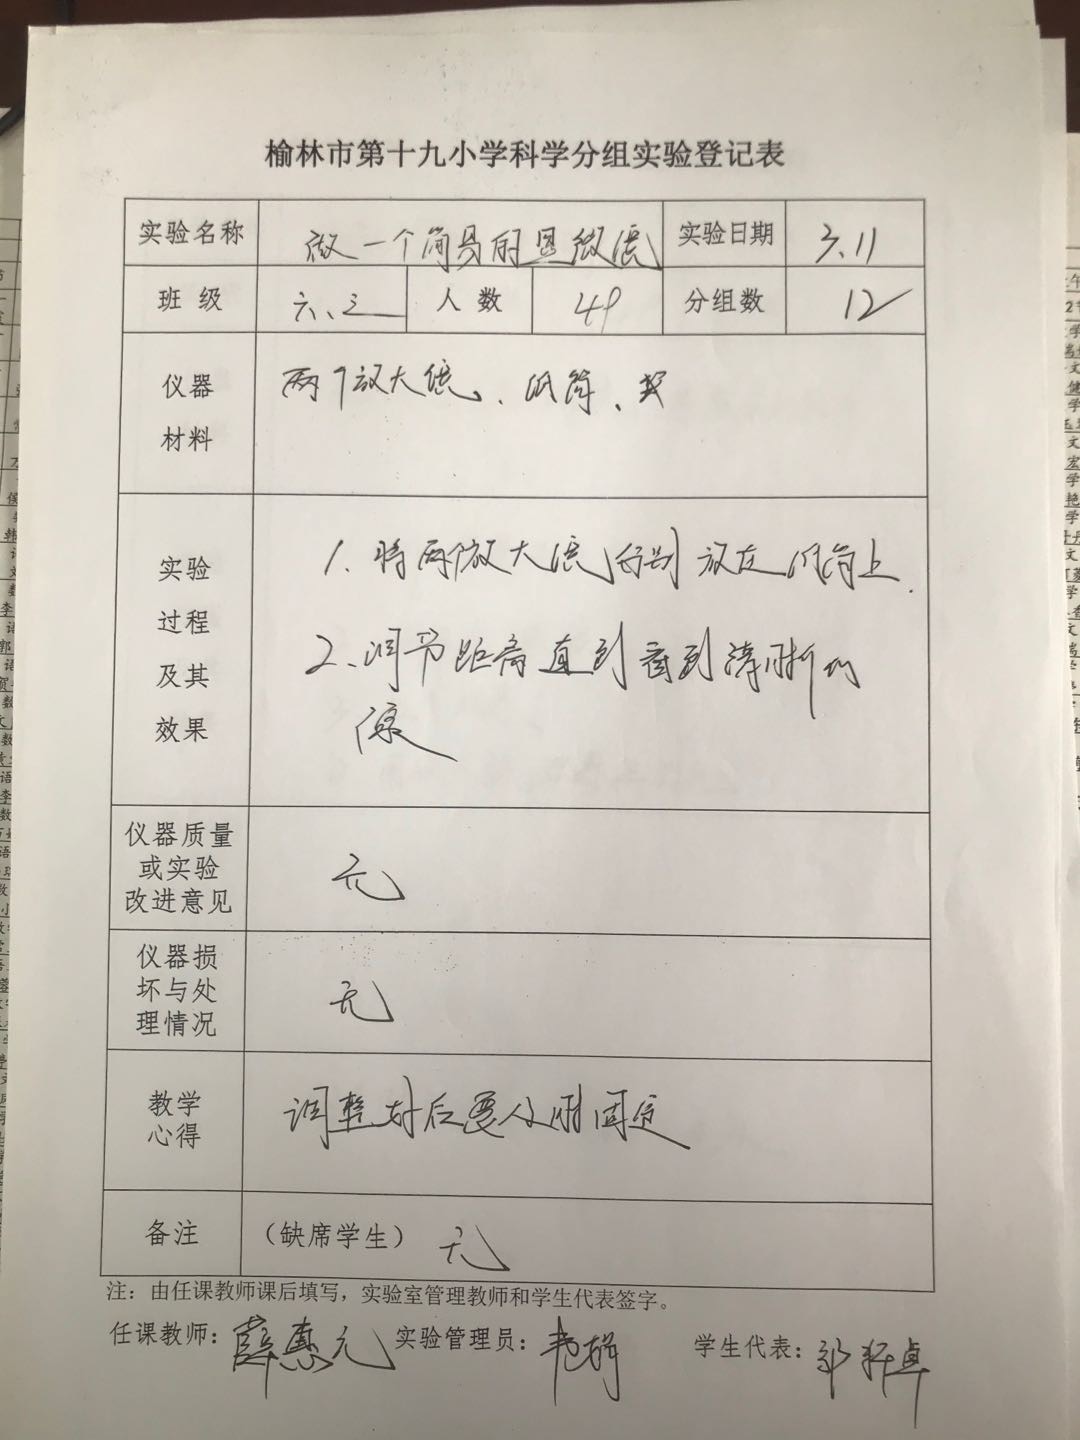 榆林市第十九小学科学分组实验登记表
实验名称 做一个简易的显微镜 实验日期 3.11
班级 六、三 人数 49 分组数 12
仪器 两个放大镜、纸筒、
材料
实验 1、将两个放大镜分别放在纸筒上.
过程
及其 2、调节距离直到看到清晰的
效果 像
仪器质量
或实验 无
改进意见
仪器损
坏与处 无
理情况
教学 调整好后要及时固定
心得
备注 （缺席学生） 无
注：由任课教师课后填写，实验室管理教师和学生代表签字。
任课教师：薛惠元 实验管理员： 学生代表：